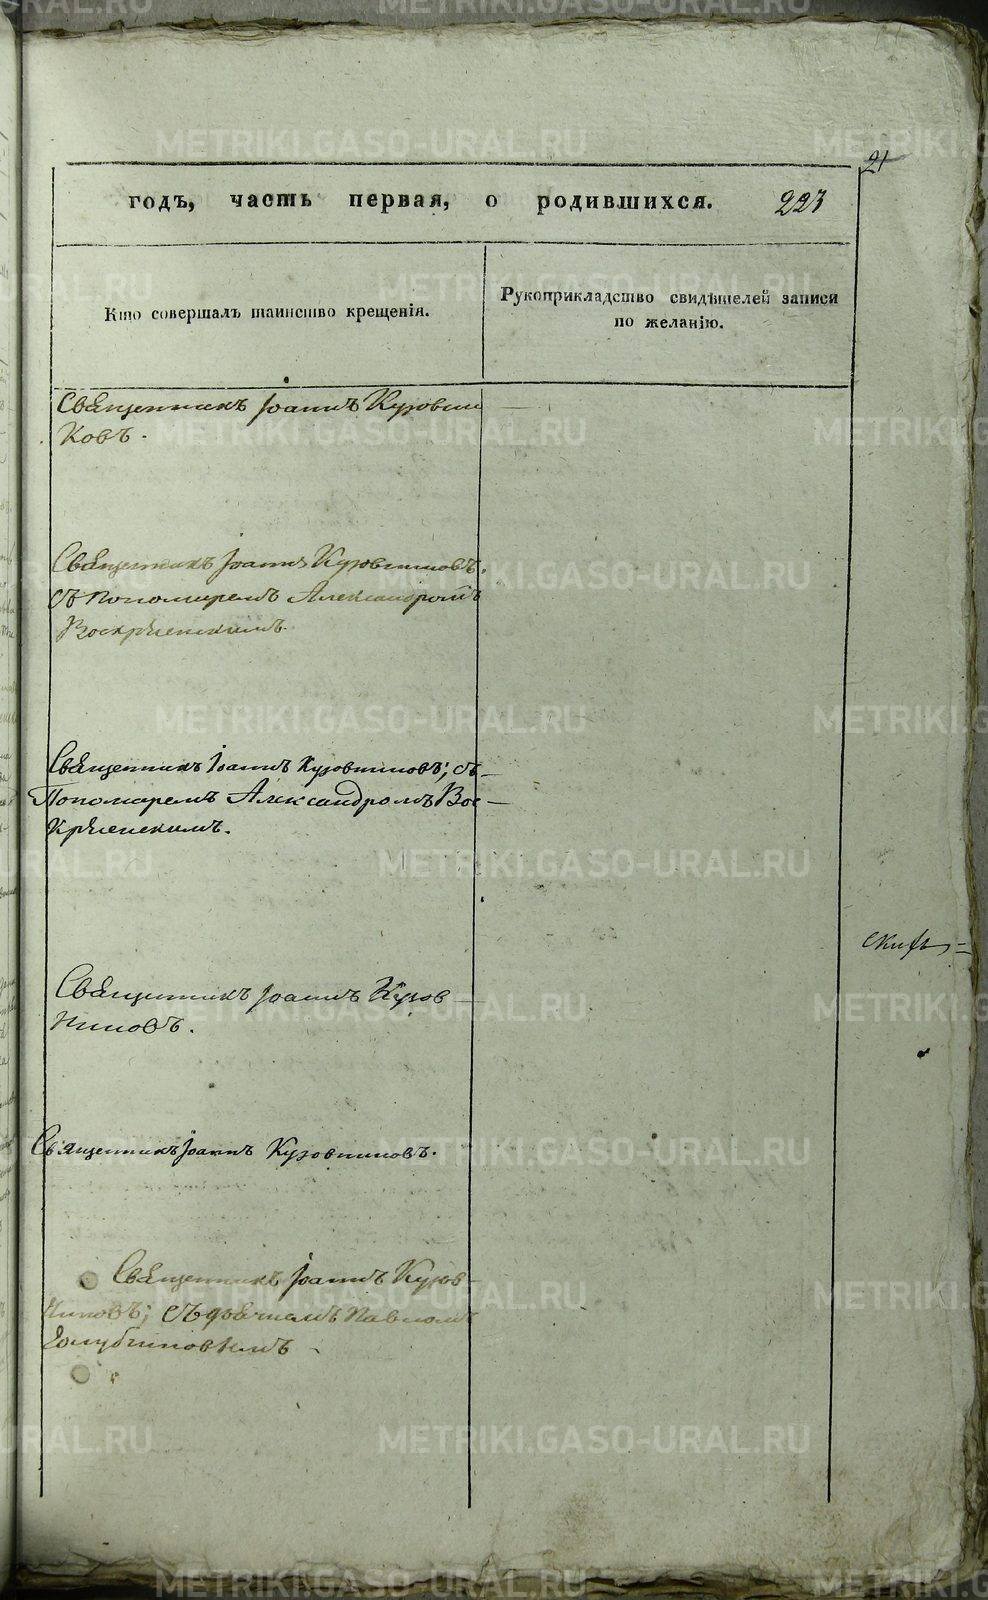 21
годъ, часть первая, о родившихся. 223
Кто совершалъ таинство крещенія.
Рукоприкладство свидѣтелей записи
по желанію.
Священникъ Іоаннъ Кузовни
ковъ.
Священникъ Іоаннъ Кузовниковъ,
съ Пономаремъ Александромъ
Воскрѣсенскимъ.
Священникъ Іоаннъ Кузовниковъ; съ
Пономаремъ Александромъ Вос-
крѣсенскимъ.
Священникъ Іоаннъ Кузов
никовъ.
Священникъ Іоаннъ Кузовниковъ.
Священникъ Іоаннъ Кузов-
никовъ; съ дьячкомъ Павломъ
METRIKI.GASO-URAL.RU